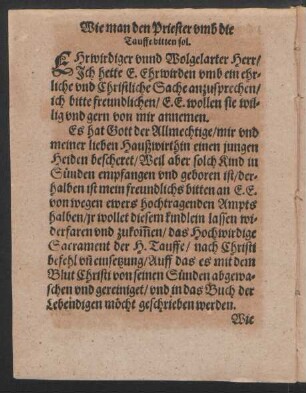 Wie man den Priester vmb die
Tauffe bitten sol.
EHrwirdiger vnnd Wolgelarter Herr/
Jch hette E. Ehrwirden vmb ein ehr-
liche vnd Christliche Sache anzusprechen/
ich bitte freundlichen/ E. E. wollen sie wil-
lig vnd gern von mir annemen.
Es hat Gott der Allmechtige/ mir vnd
meiner lieben Haußwirthin einen jungen
Heiden bescheret/ Weil aber solch Kind in
Sünden empfangen vnd geboren ist/ der-
halben ist mein freundlichs bitten an E. E.
von wegen ewers hochtragenden Ampts
halben/ jr wollet diesem kindlein lassen wi-
derfaren vnd zukom̃en/ das Hochwirdige
Sacrament der H. Tauffe/ nach Christi
befehl vn̄ einsetzung/ Auff das es mit dem
Blut Christi von seinen Sünden abgewa-
schen vnd gereiniget/ vnd in das Buch der
Lebendigen möcht geschrieben werden.
Wie